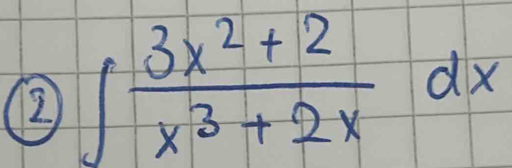 ② ∫ (3x² + 2)/(x³ + 2x) dx